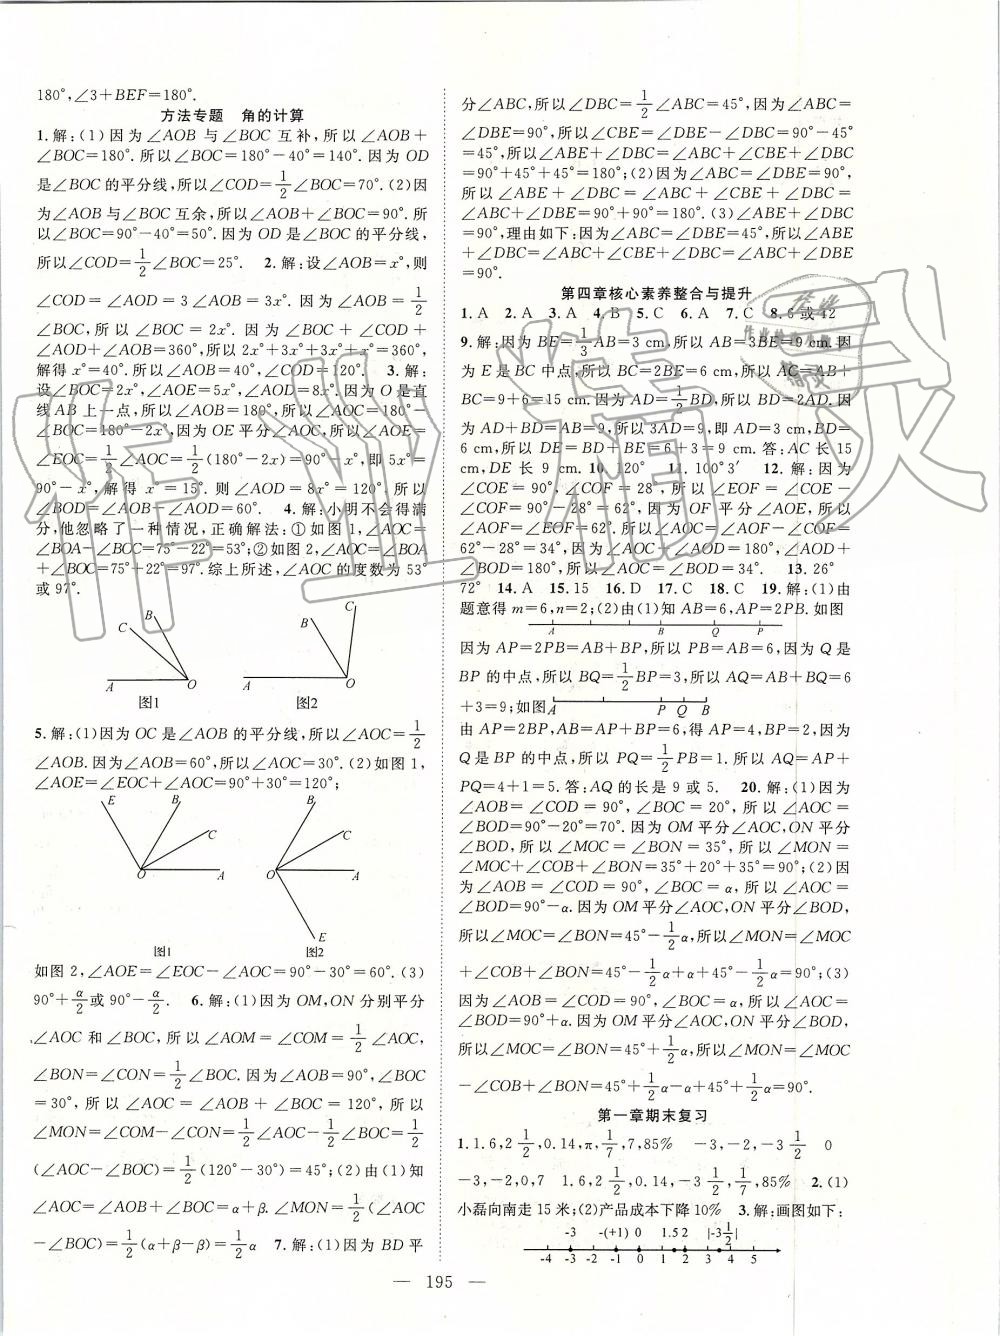 180°,∠3+BEF=180°.
方法专题　角的计算
1.解:(1)因为∠AOB与∠BOC互补,所以∠AOB+
∠BOC=180°.所以∠BOC=180°-40°=140°.因为OD
是∠BOC的平分线,所以∠COD=1/2∠BOC=70°.(2)因
为∠AOB与∠BOC互余,所以∠AOB+∠BOC=90°.所
以∠BOC=90°-40°=50°.因为OD是∠BOC的平分线,
所以∠COD=1/2∠BOC=25°. 2.解:设∠AOB=x°,则
∠COD=∠AOD=3∠AOB=3x°.因为∠AOB=1/2
∠BOC,所以∠BOC=2x°.因为∠BOC+∠COD
+∠AOD+∠AOB=360°,所以2x°+3x+3x+x=360°.
解得x°=40°.所以∠COD=120°. 3.解:
设∠BOC=2x°,∠AOE=5x°,∠AOD=8x°.因为O是直
线AB上一点,所以∠AOB=180°,所以∠AOC=180°-
∠BOC=180°-2x°,因为OE平分∠AOC,所以∠AOE=
∠EOC=1/2∠AOC=1/2(180°-2x)=90°-x°,即5x°=
90°-x°,解得x°=15°.则∠AOD=8x°=120°.所以
∠BOD=∠AOB-∠AOD=60°. 4.解:小明不会得满
分,他忽略了一种情况,正确解法:①如图1,∠AOC=
∠BOA-∠BOC=75°-22°=53°;②如图2,∠AOC=∠BOA
+∠BOC=75°+22°=97°.综上所述,∠AOC的度数为53°
或97°.
B
C
A
O
图1
B
A
O
图2
5.解:(1)因为OC是∠AOB的平分线,所以∠AOC=1/2
∠AOB.因为∠AOB=60°,所以∠AOC=30°.(2)如图1,
∠AOE=∠EOC+∠AOC=90°+30°=120°;
E
B
C
O
A
图1
B
C
O
A
E
图2
如图2,∠AOE=∠EOC-∠AOC=90°-30°=60°.(3)
90°+α/2或90°-α/2. 6.解:(1)因为OM,ON分别平分
∠AOC和∠BOC,所以∠AOM=∠COM=1/2∠AOC,
∠BON=∠CON=1/2∠BOC.因为∠AOB=90°,∠BOC
=30°,所以∠AOC=∠AOB+∠BOC=120°,所以
∠MON=∠COM-∠CON=1/2∠AOC-1/2∠BOC=1/2
(∠AOC-∠BOC)=1/2(120°-30°)=45°;(2)由(1)知
∠AOC=∠AOB+∠BOC=α+β.∠MON=1/2(∠AOC-
∠BOC)=1/2(α+β-β)=1/2α 7.解:(1)因为BD平
分∠ABC,所以∠DBC=1/2∠ABC=45°,因为
∠DBE=90°,所以∠CBE=∠DBE-∠DBC=90°-45°
=45°,所以∠ABE+∠DBC=∠ABC+∠CBE+∠DBC=
90°+45°+45°=180°;(2)因为∠DBE=90°,
所以∠ABE+∠DBC=∠ABC+∠CBE+∠DBC=
∠ABC+∠DBE=90°+90°=180°.(3)∠ABE+∠DBC
=90°,理由如下:因为∠DBE=45°,所以∠ABE
+∠DBC=∠ABC-∠CBE+∠DBC=∠ABC
=90°.
第四章核心素养整合与提升
1.A 2.A 3.A 4.B 5.C 6.A 7.C 8.6或42
9.解:因为BE=1/3AB=3 cm,所以AB=3BE=9 cm.因
为E是BC中点,所以BC=2BE=6 cm,所以AC=AB+
BC=9+6=15 cm.因为AD=1/2BD,所以BD=2AD.因
为AD+BD=AB=9,所以3AD=9,即AD=3 cm,BD=6
cm,所以DE=BD+BE=6+3=9 cm.答:AC长15
cm,DE长9 cm. 10.120° 11.100°3′ 12.解:因为
∠COE=90°,∠COF=28°,所以∠EOF=∠COE-∠COF=
90°-28°=62°,因为OF平分∠AOE,所以
∠AOF=∠EOF=62°.所以∠AOC=∠AOF-∠COF=
62°-28°=34°,因为∠AOC+∠BOC=
∠BOD+∠BOC=180°,所以∠BOD=34°. 13.26°
72° 14.A 15.15 16.D 17.C 18.C 19.解:(1)由
题意得m=6,n=2;(2)由(1)知AB=6,AP=2PB.如图
A B Q P
因为AP=2PB=AB+BP,所以PB=AB=6,因为Q是
BP的中点,所以BQ=1/2BP=3,所以AQ=AB+BQ=6
+3=9;如图A P Q B
由AP=2BP,AB=AP+BP=6,得AP=4,BP=2,因为
Q是BP的中点,所以PQ=1/2PB=1.所以AQ=AP+
PQ=4+1=5.答:AQ的长是9或5. 20.解:(1)因为
∠AOB=∠COD=90°,∠BOC=20°,所以∠AOC=
∠BOD=90°-20°=70°.因为OM平分∠AOC,ON平分
∠BOD,所以∠MOC=∠BON=35°,所以∠MON=
∠MOC+∠COB+∠BON=35°+20°+35°=90°;(2)因
为∠AOB=∠COD=90°,∠BOC=α,所以∠AOC=
∠BOD=90°-α.因为OM平分∠AOC,ON平分∠BOD,
所以∠MOC=∠BON=45°-1/2α,所以∠MON=∠MOC
+∠COB+∠BON=45°-1/2α+α+45°-1/2α=90°;(3)
因为∠AOB=∠COD=90°,∠BOC=α,所以∠AOC=
∠BOD=90°+α.因为OM平分∠AOC,ON平分∠BOD,
所以∠MOC=∠BON=45°+1/2α,所以∠MON=∠MOC
-∠COB+∠BON=45°+1/2α-α+45°+1/2α=90°.
第一章期末复习
1.1.6,2 1/2,0.14,π,1/7,7,85% -3,-2,-3 1/2 0
-3,-2,0,7 1.6,2 1/2,0.14,-3 1/2,1/7,85% 2.(1)
小磊向南走15米;(2)产品成本下降10% 3.解:画图如下:
-3 -(+1) 0 1.5 2 |-3 1/2|
-4 -3 -2 -1 0 1 2 3 4 5
— 195 —
作业精灵